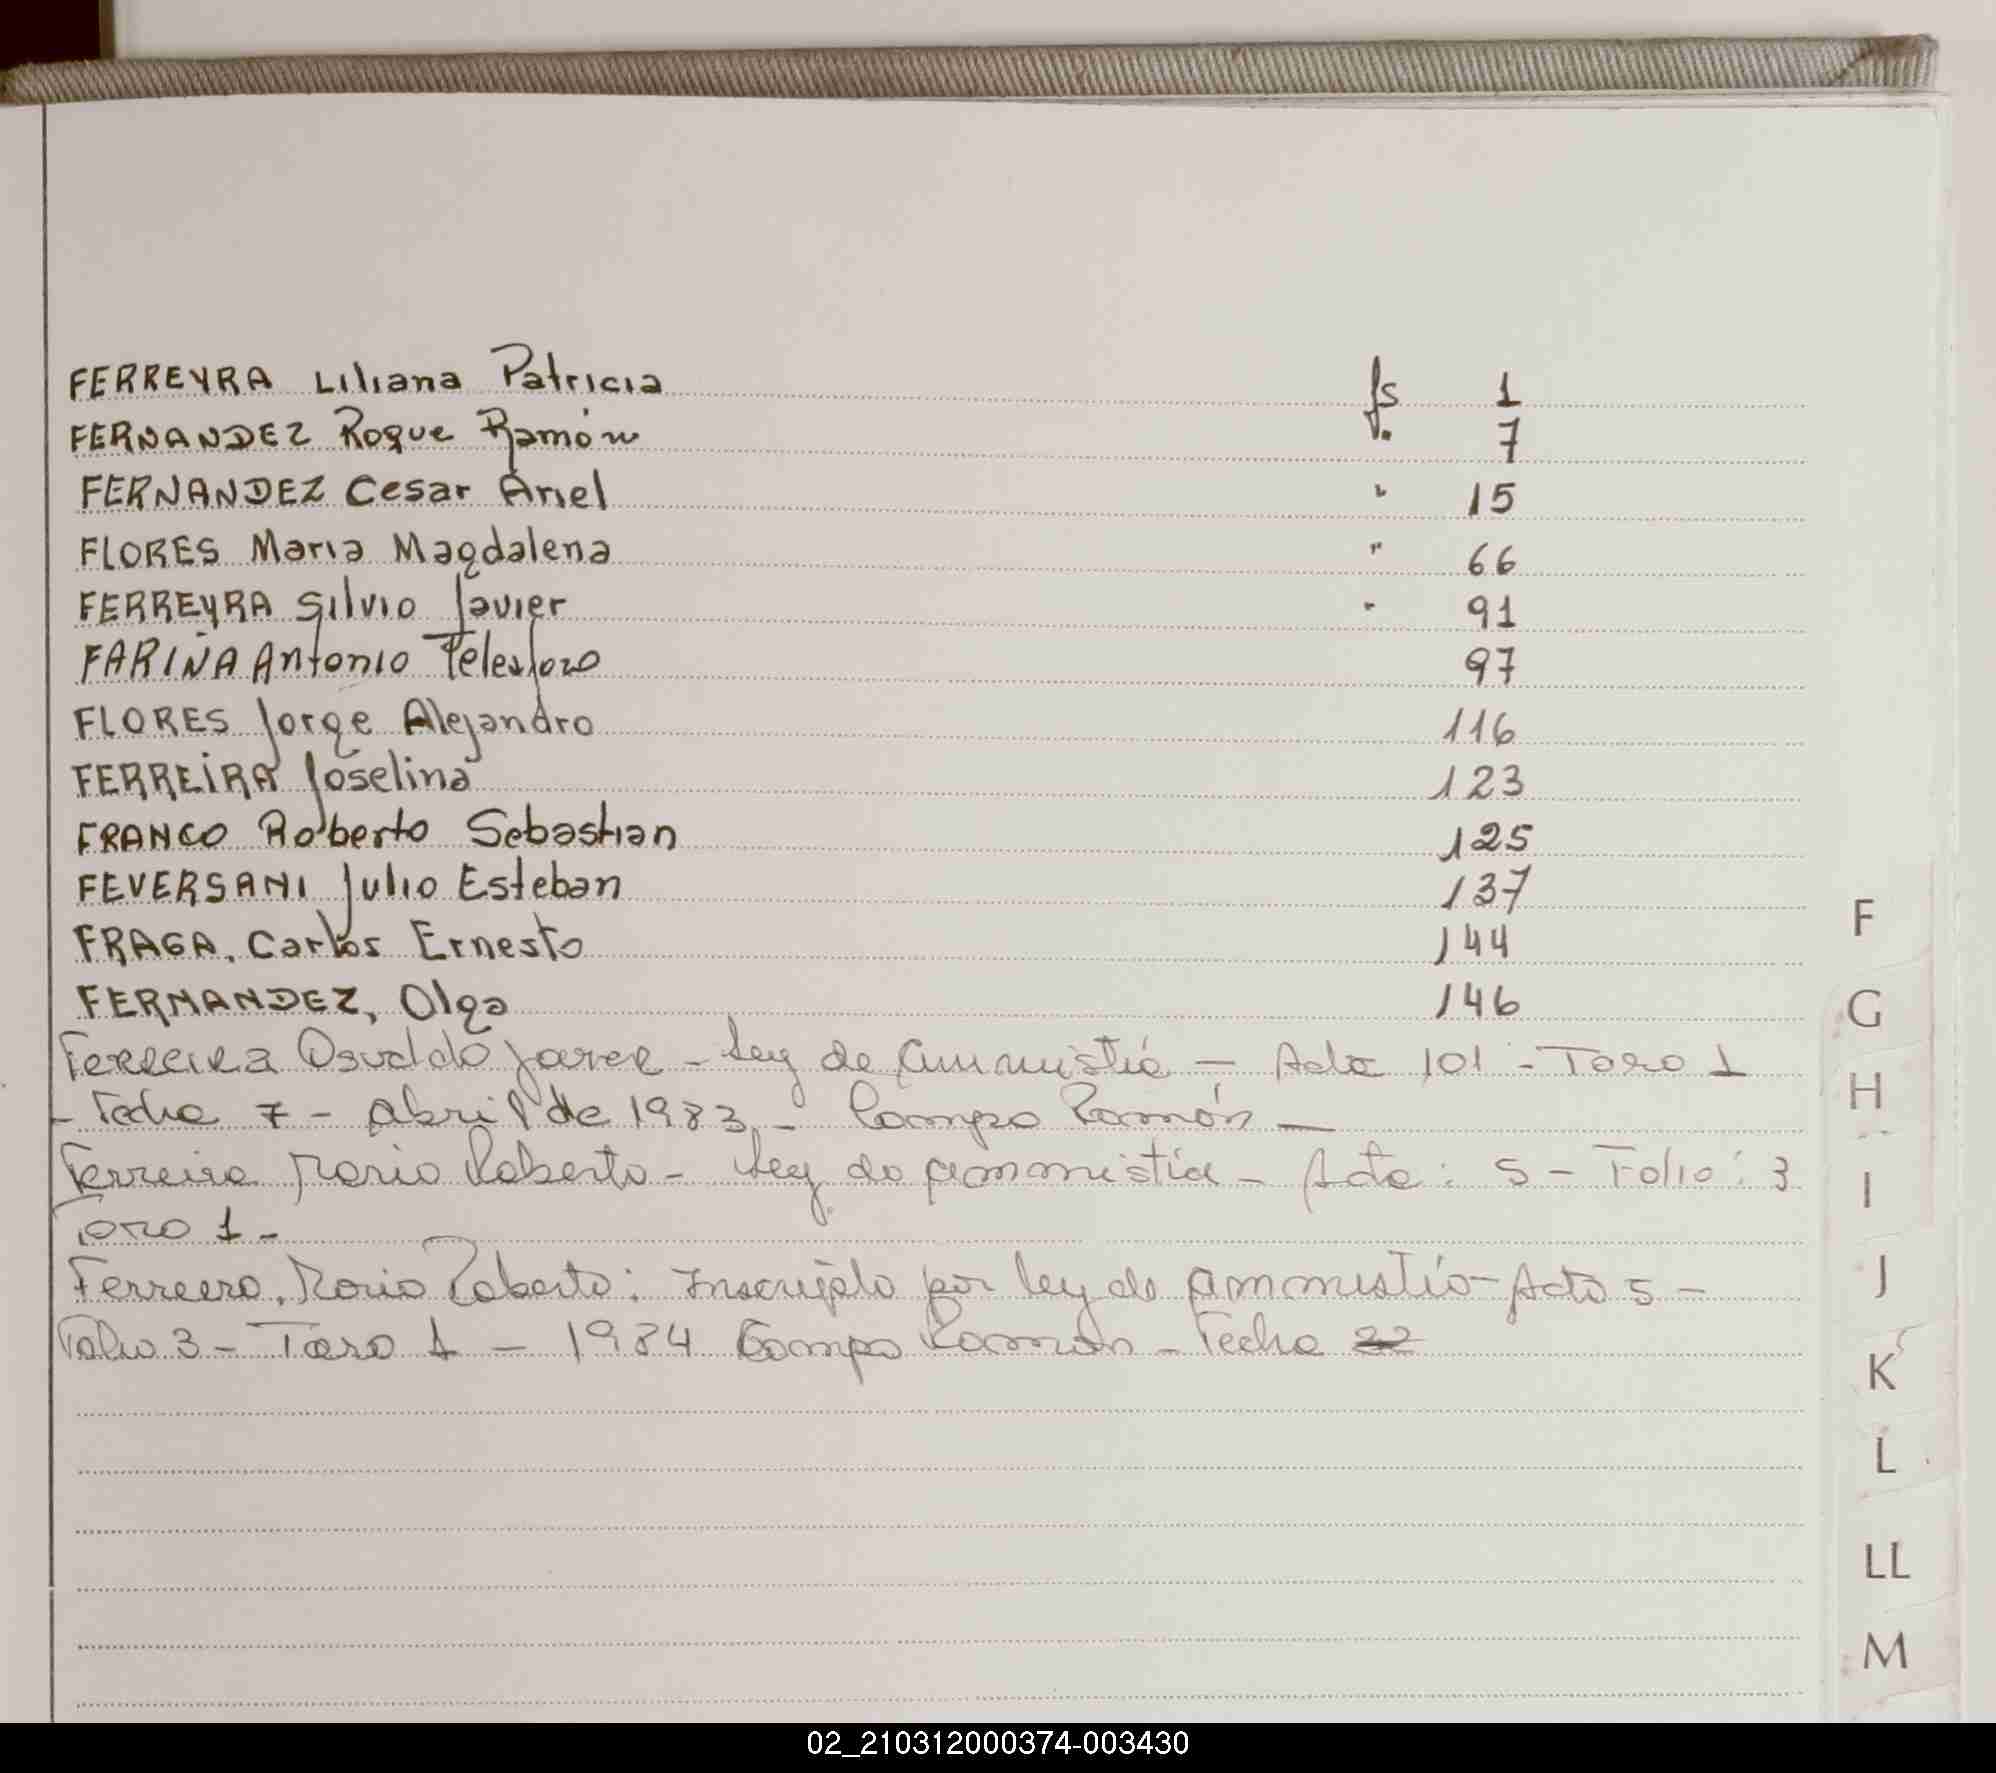 FERREYRA Liliana Patricia fs 1
FERNANDEZ Roque Ramón " 7
FERNANDEZ Cesar Ariel " 15
FLORES Maria Magdalena " 66
FERREYRA Silvio Javier " 91
FARIÑA Antonio Telesforo 97
FLORES Jorge Alejandro 116
FERREIRA Joselina 123
FRANCO Roberto Sebastian 125
FEVERSANI Julio Esteban 137
FRAGA, Carlos Ernesto 144
FERNANDEZ, Olga 146
Ferreira Osvaldo Javier - Ley de ammistia - Acta 101 - Tomo 1
- Fecha 7 - abril de 1983 - Campo Ramón -
Ferreira Mario Roberto - Ley de ammistia - Acta: 5 - Folio: 3
Tomo 1 -
Ferreira, Mario Roberto: Inscripto por ley de ammistia - Acta 5 -
Folio 3 - Tomo 1 - 1984 Campo Ramón - Fecha
F
G
H
I
J
K
L
LL
M
02_210312000374-003430